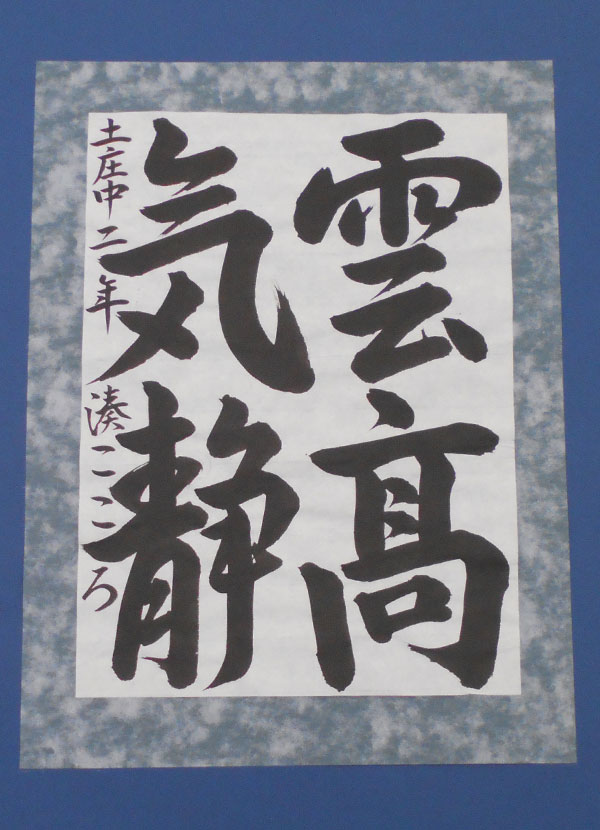 雲髙
気静
土庄中二年 湊こころ